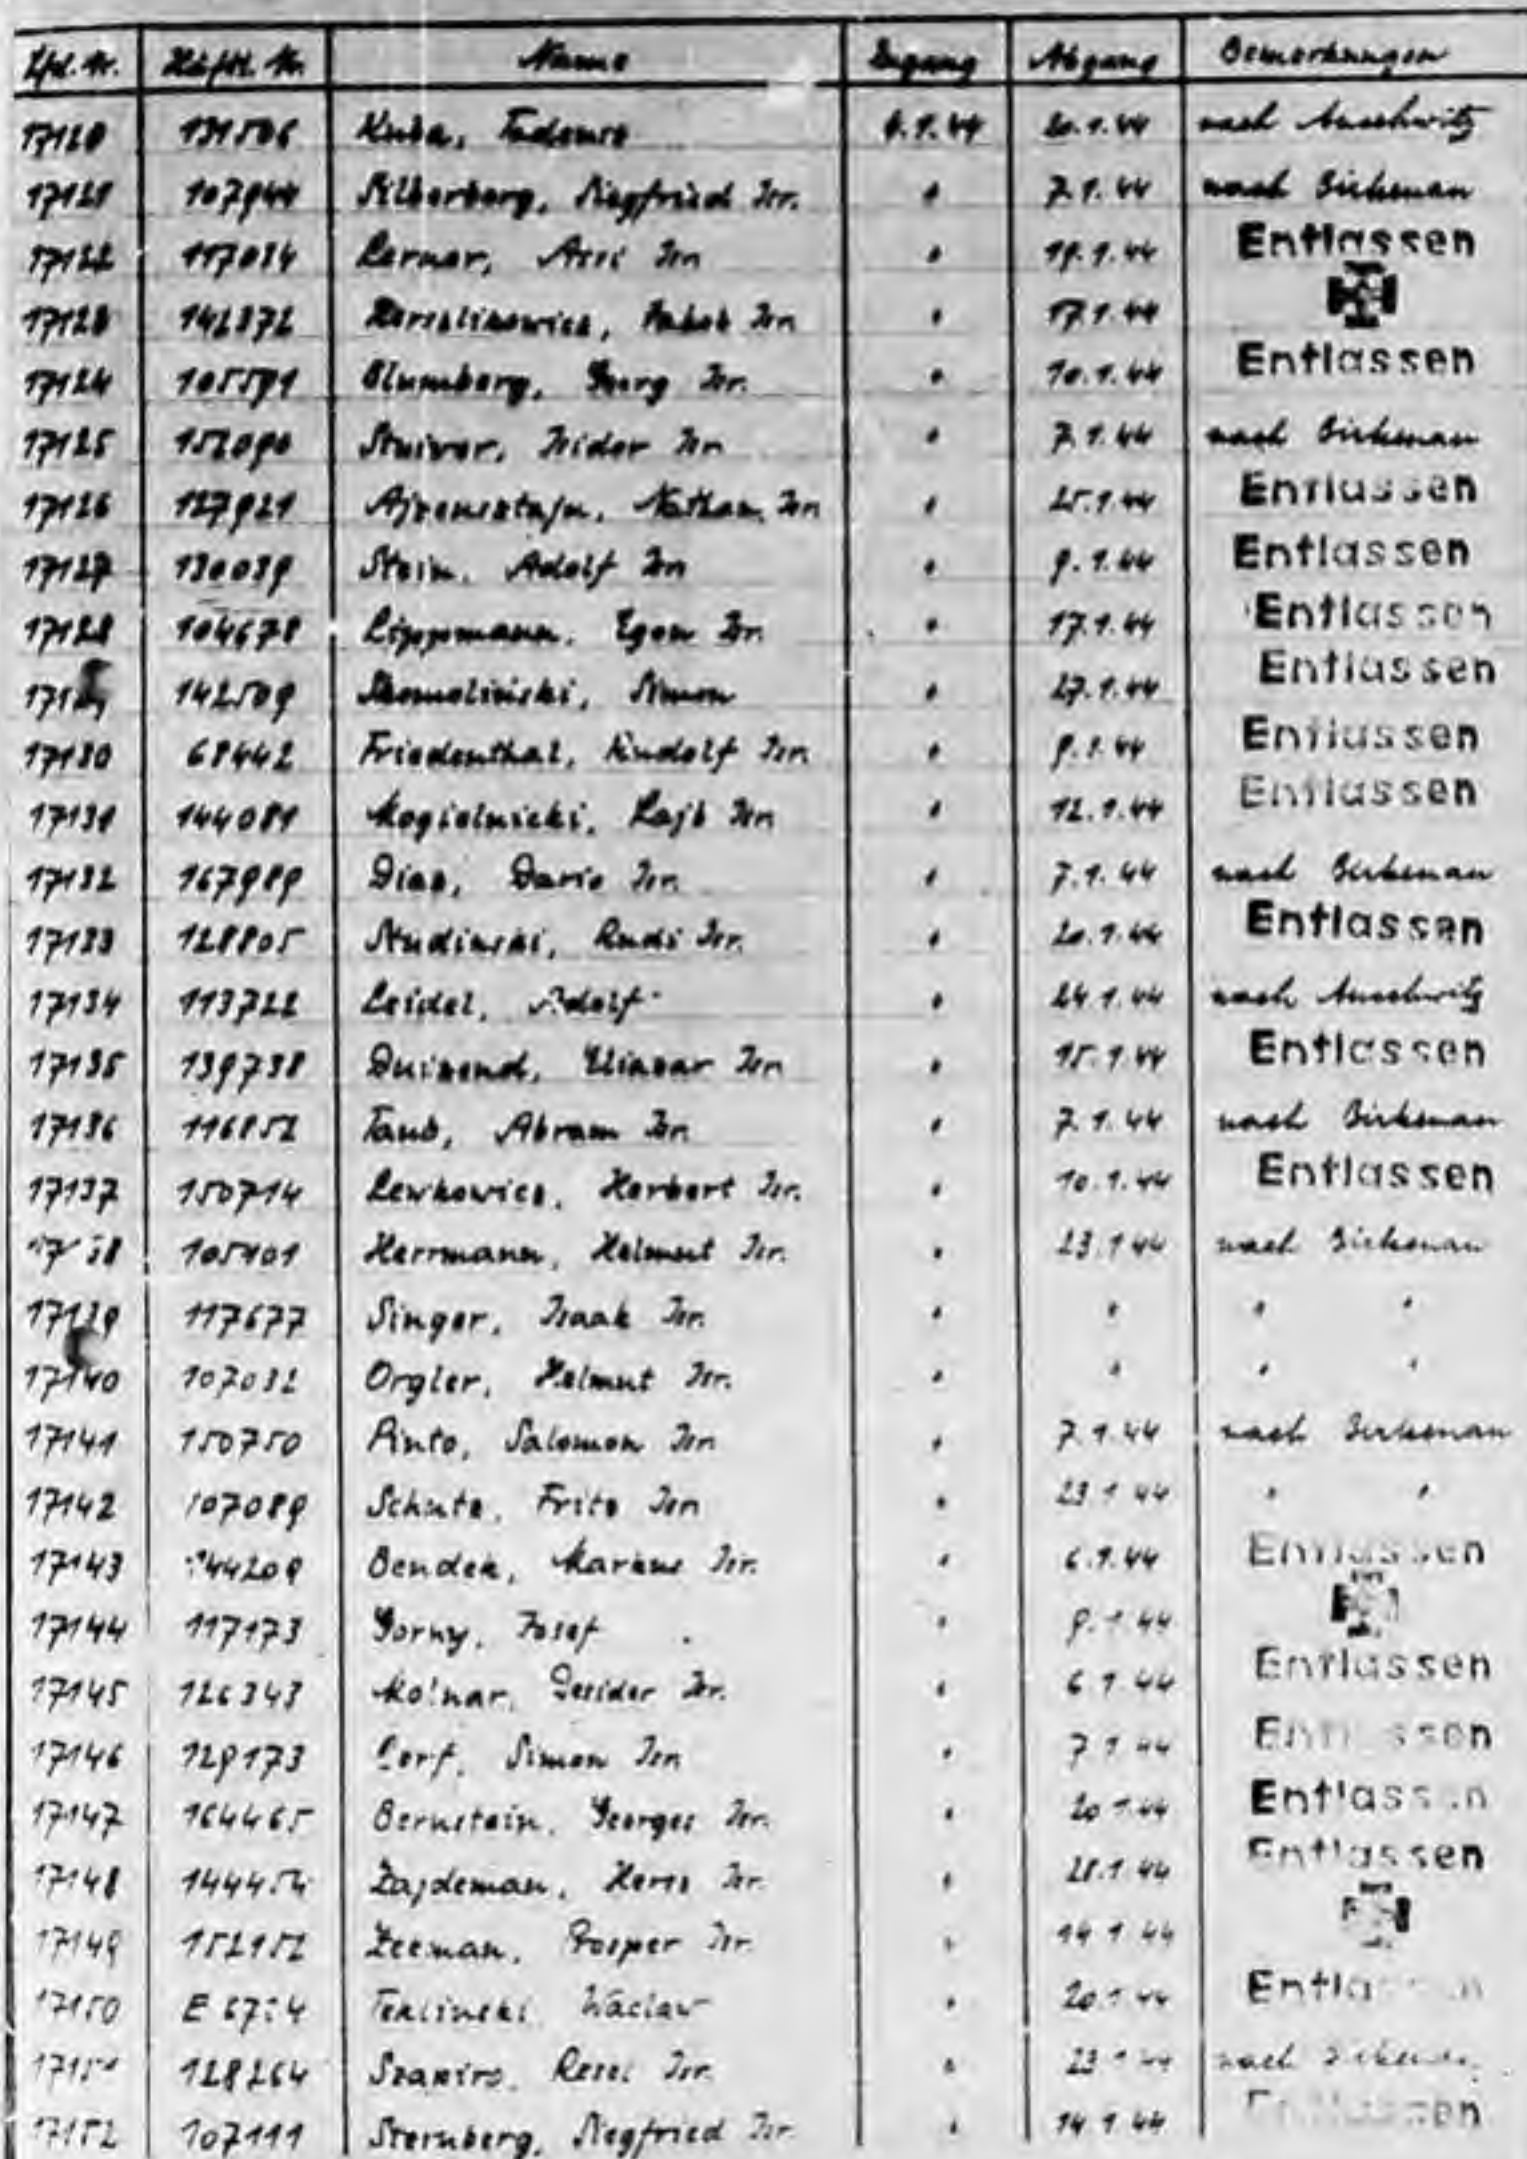 Lfd. Nr. Häftl. Nr. Name Zugang Abgang Bemerkungen
17120 131506 Kuba, Tadeusz 6.1.44 20.1.44 nach Auschwitz
17121 107944 Silberberg, Siegfried Isr. " 7.1.44 nach Birkenau
17122 117034 Lerner, Isr. " 19.1.44 Entlassen
17123 142372 Jakob Isr. " 17.1.44
17124 105591 Blumberg, Georg Isr. " 10.1.44 Entlassen
17125 152090 Stuiver, Isidor Isr. " 7.1.44 nach Birkenau
17126 127921 Ajzensztajn, Nathan Isr. " 25.1.44 Entlassen
17127 130039 Stein, Adolf Isr. " 9.1.44 Entlassen
17128 104678 Lippmann, Egon Isr. " 17.1.44 Entlassen
1712 142509 Skomolinski, Simon " 27.1.44 Entlassen
17130 68442 Friedenthal, Rudolf Isr. " 9.1.44 Entlassen
17131 144081 Mogielnicki, Lajb Isr. " 12.1.44 Entlassen
17132 167989 Diaz, Dario Isr. " 7.1.44 nach Birkenau
17133 128805 Studinski, Rudi Isr. " 20.1.44 Entlassen
17134 113722 Leidel, Adolf " 24.1.44 nach Auschwitz
17135 139738 Duizend, Eliazar Isr. " 15.1.44 Entlassen
17136 116852 Taub, Abram Isr. " 7.1.44 nach Birkenau
17137 150714 Lewkowicz, Herbert Isr. " 10.1.44 Entlassen
17138 105101 Herrmann, Helmut Isr. " 23.1.44 nach Birkenau
17139 117677 Singer, Isaak Isr. " " " "
17140 107032 Orgler, Helmut Isr. " " " "
17141 150750 Pinto, Salomon Isr. " 7.1.44 nach Birkenau
17142 107089 Schutz, Fritz Isr. " 23.1.44 " "
17143 144209 Bendek, Markus Isr. " 6.1.44 Entlassen
17144 117173 Gorny, Josef " 9.1.44
17145 126343 Molnar, Desider Isr. " 6.1.44 Entlassen
17146 129173 Simon Isr. " 7.1.44 Entlassen
17147 164465 Bernstein, Georges Isr. " 20.1.44 Entlassen
17148 144454 Zajdeman, Hersz Isr. " 28.1.44 Entlassen
17149 152152 Zeeman, Prosper Isr. " 14.1.44
17150 Waclaw " 20.1.44 Entlassen
17151 128264 Szapiro, Isr. " 23.1.44 nach Birkenau
17152 107111 Sternberg, Siegfried Isr. " 14.1.44 Entlassen